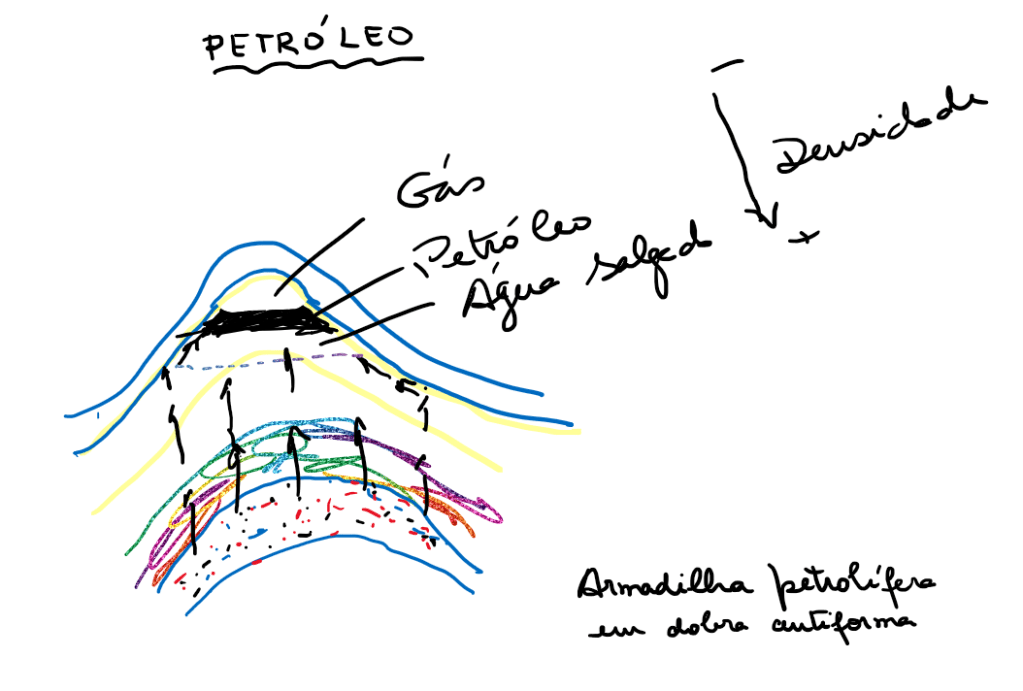 PETRÓLEO
-
Densidade
+
Gás
Petróleo
Água salgada
Armadilha petrolífera
em dobra antiforma